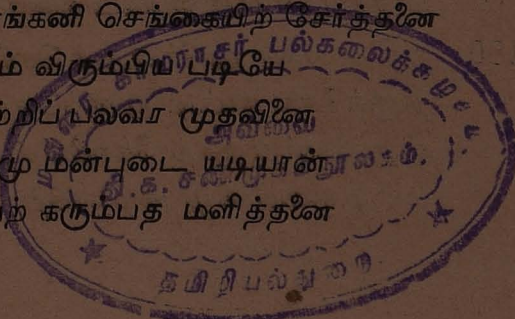 ங்கனி செங்கையிற் சேர்த்தனை
ம் விரும்பிய படியே
றிப் பலவர முதவினை
மு மன்புடை யடியான்
ற் கரும்பத மளித்தனை
பல்கலைக்கழகம்
ஔவை
தி. க. நூலகம்.
தமிழியல் துறை